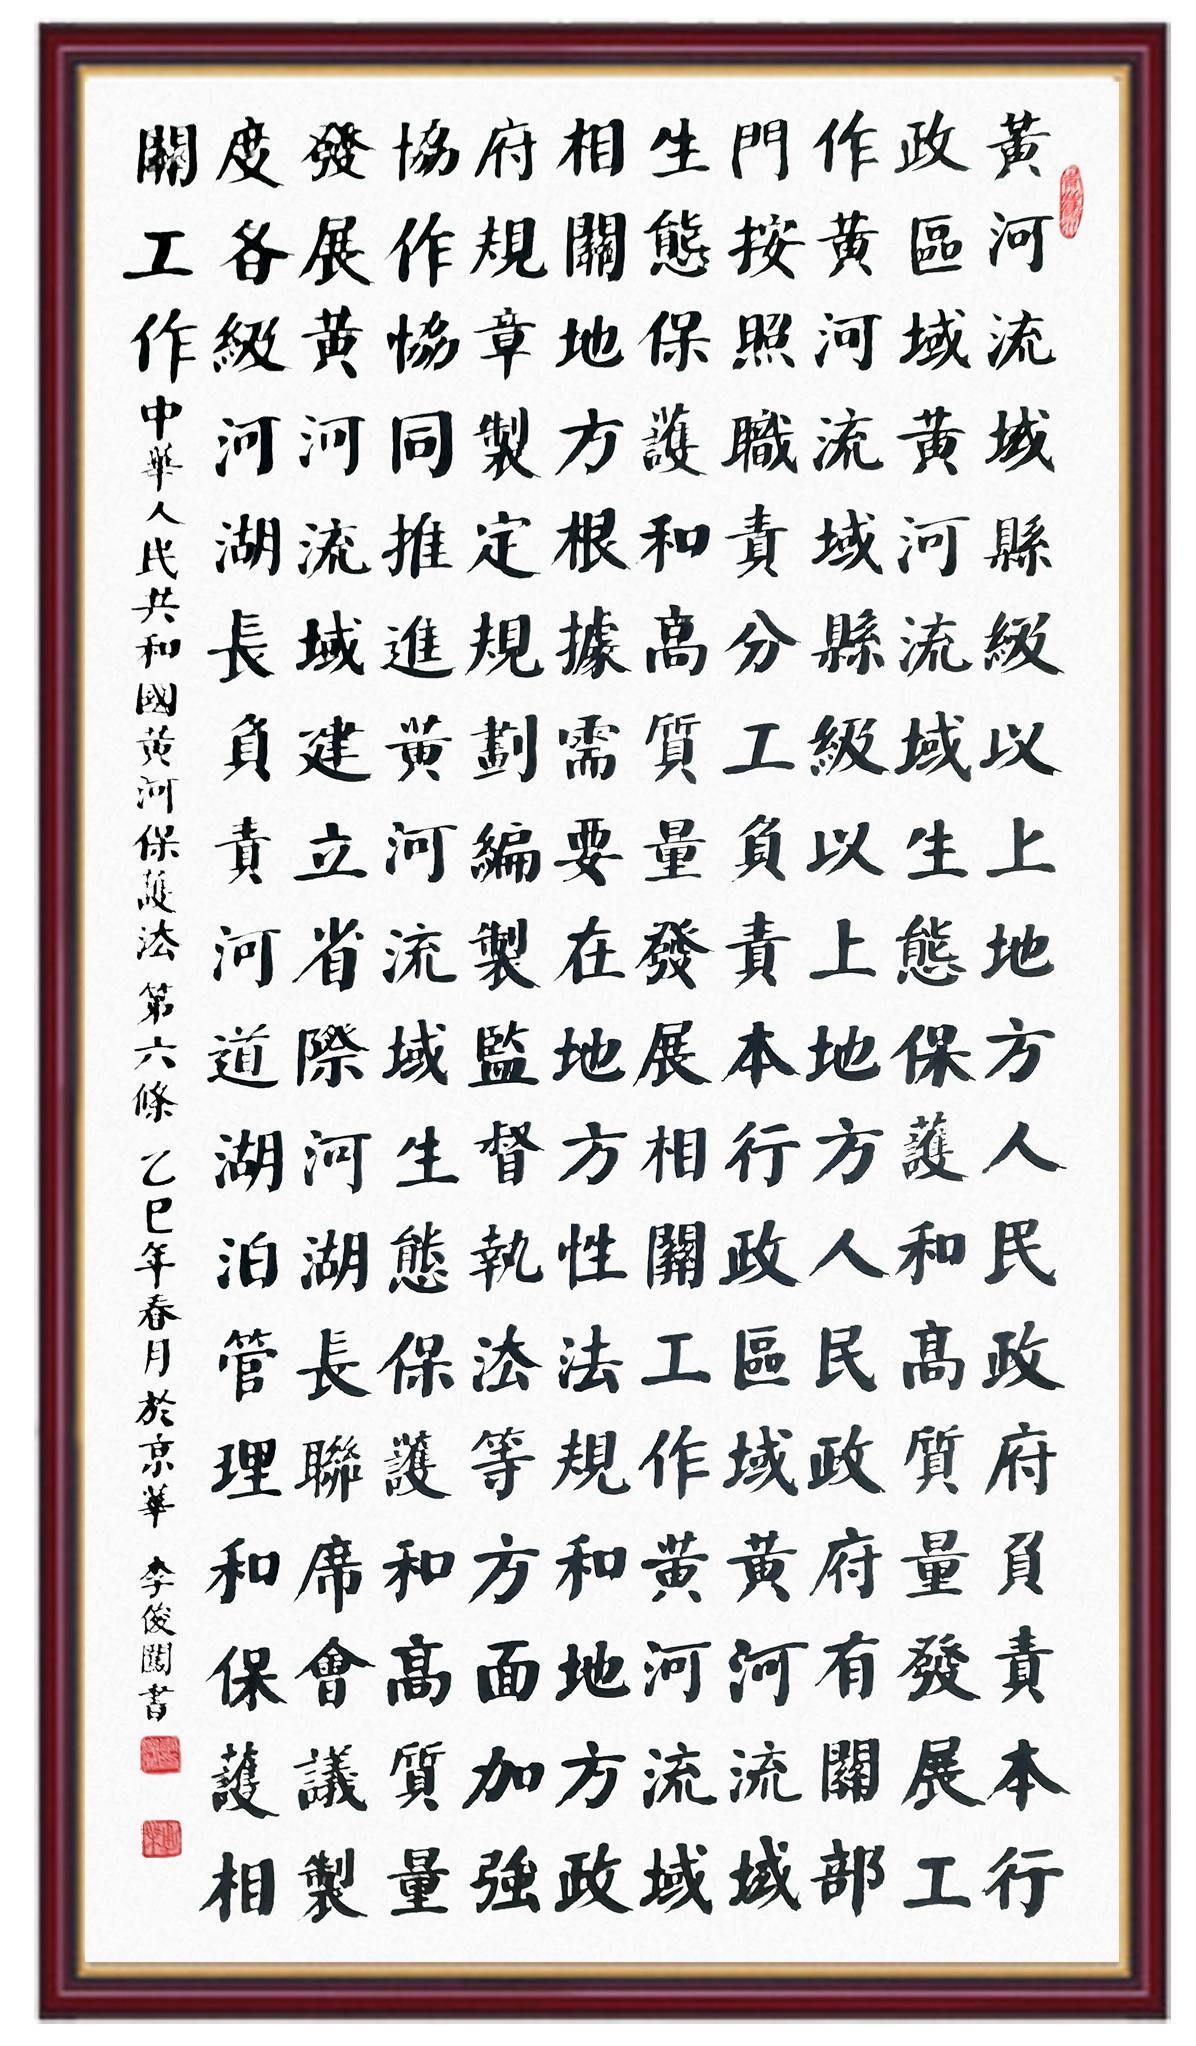 黃河流域縣級以上地方人民政府負責本行
政區域黃河流域生態保護和高質量發展工
作黃河流域縣級以上地方人民政府有關部
門按照職責分工負責本行政區域黃河流域
生態保護和高質量發展相關工作黃河流域
相關地方根據需要在地方性法規和地方政
府規章製定規劃編製監督執法等方面加強
協作協同推進黃河流域生態保護和高質量
發展黃河流域建立省際河湖長聯席會議製
度各級河湖長負責河道湖泊管理和保護相
關工作中華人民共和國黃河保護法第六條乙巳年春月於京華李俊闖書